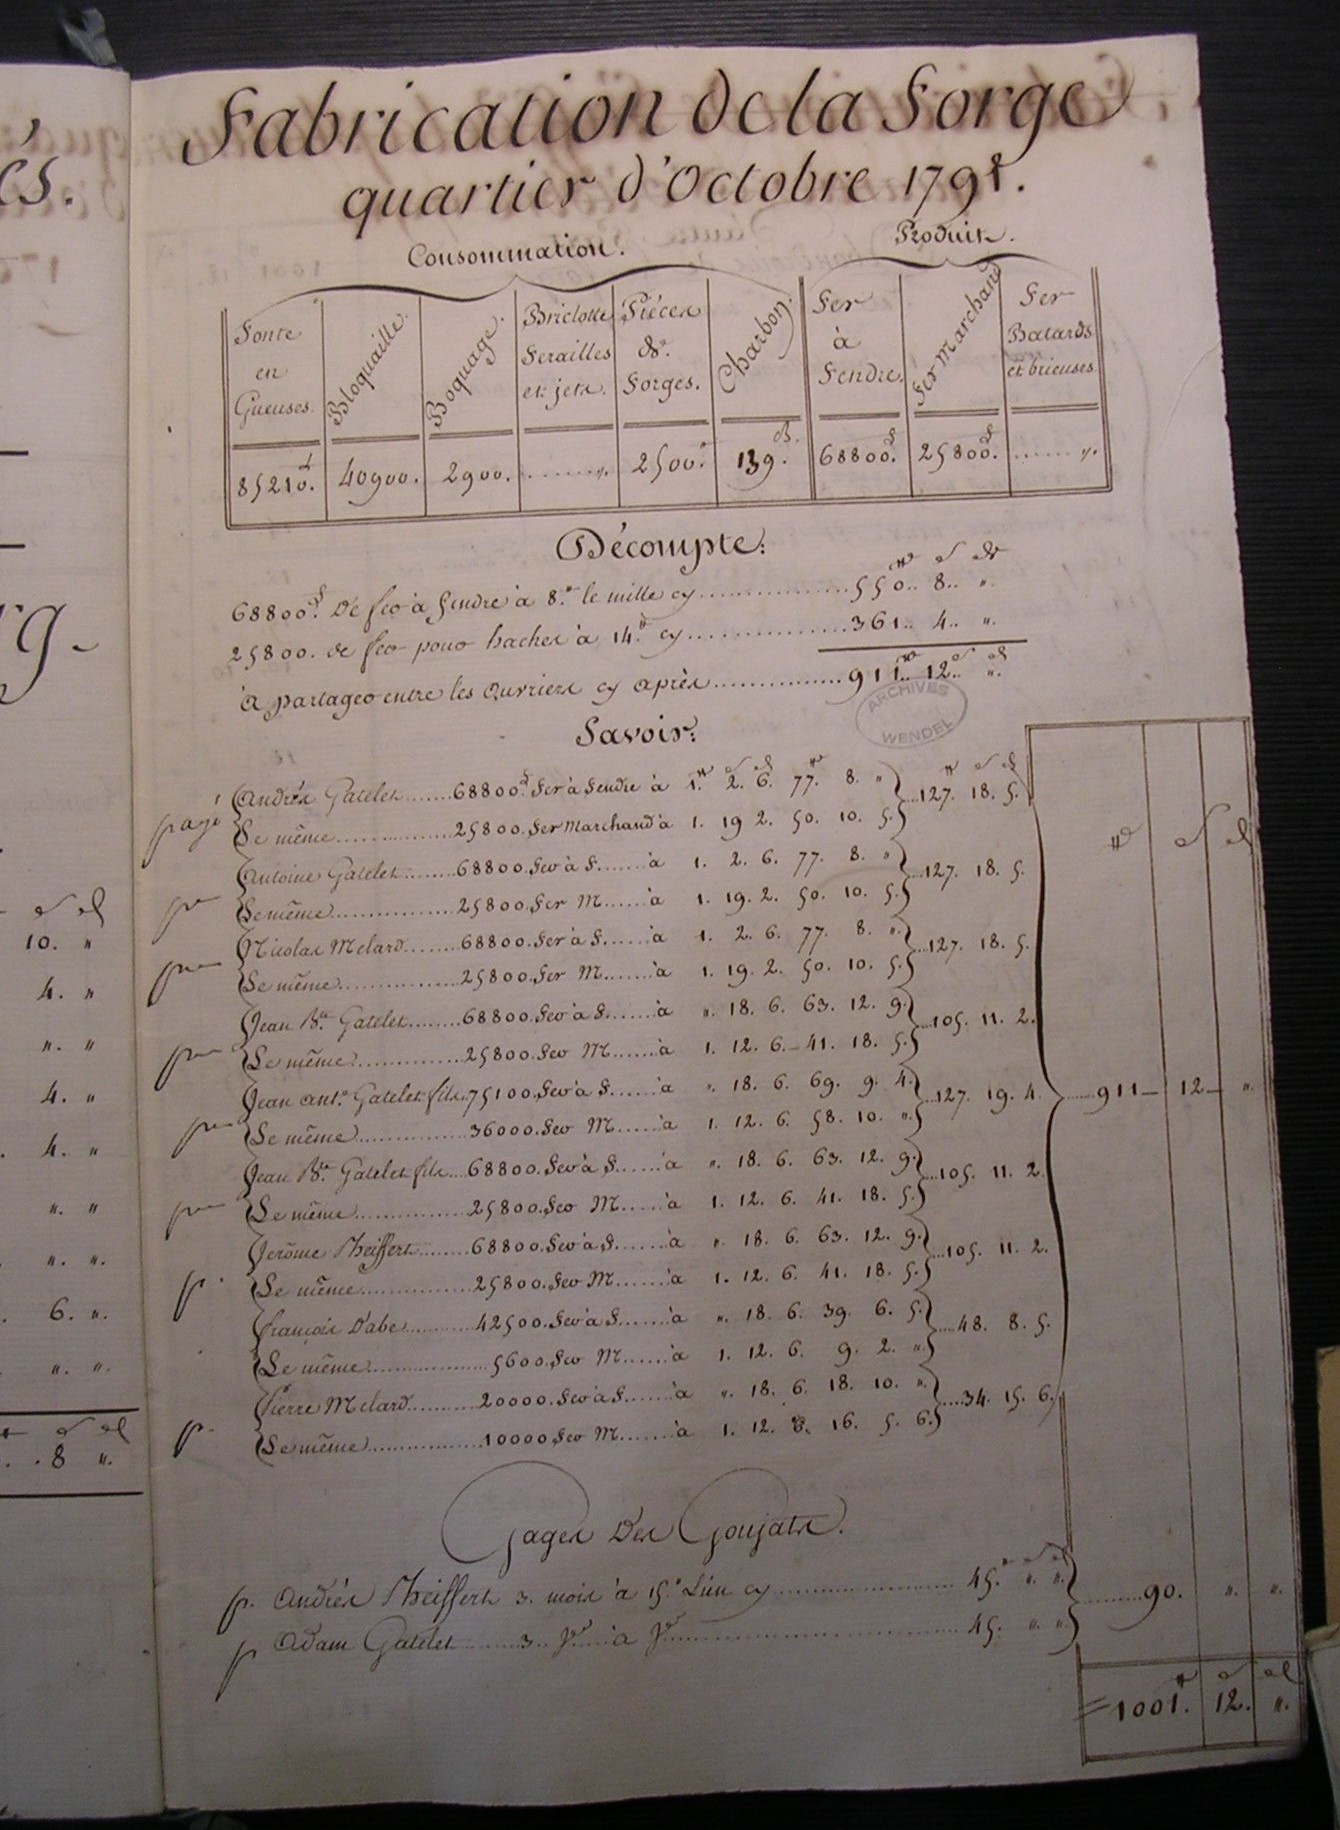 Fabrication de la Forge
quartier d'Octobre 1791.
Consommation. Produit.
Fonte en Gueuses. Bloquaille. Boquage. Briclotte ferailles et jets. Piéces de forges. Charbon. Fer à Fendre. Fer Marchand Fer Batards et brieuses.
85210. 40900. 2900. ........." 2500. 139. 68800. 25800. ......".
Décompte:
68800. de fer à fendre à 8. le mille cy ............... 550.. 8.. ".
25800. de fer pour hacher à 14. cy ............... 361.. 4.. ".
à partager entre les ouvriers cy après ............... 911.. 12.. ".
ARCHIVES
WENDEL
Savoir:
payé Andrés Gatelet ....... 68800. fer à fendre à 1. 2. 6. 77. 8. " ... 127. 18. 5.
Le même ............... 25800. fer Marchand à 1. 19 2. 50. 10. 5.
Antoine Gatelet ........ 68800. fer à f. ...... à 1. 2. 6. 77. 8. " ... 127. 18. 5.
Le même ............... 25800. fer M ...... à 1. 19. 2. 50. 10. 5.
Nicolas Melard ........ 68800. fer à f. ...... à 1. 2. 6. 77. 8. ". ... 127. 18. 5.
Le même ............... 25800. fer M ...... à 1. 19. 2. 50. 10. 5.
Jean Bte. Gatelet ....... 68800. fer à f. ...... à ". 18. 6. 63. 12. 9. ... 105. 11. 2.
Le même ............... 25800. fer M ...... à 1. 12. 6. 41. 18. 5.
Jean ant.e Gatelet fils .. 75100. fer à f. ...... à ". 18. 6. 69. 9. 4. ... 127. 19. 4. ...... 911 — 12 — ".
Le même ............... 36000. fer M ...... à 1. 12. 6. 58. 10. ".
Jean Bte. Gatelet fils ... 68800. fer à f. ...... à ". 18. 6. 63. 12. 9. ... 105. 11. 2.
Le même ............... 25800. fer M ...... à 1. 12. 6. 41. 18. 5.
Jerôme Theiffert ........ 68800. fer à f. ...... à ". 18. 6. 63. 12. 9. ... 105. 11. 2.
p. Le même ............... 25800. fer M ...... à 1. 12. 6. 41. 18. 5.
françois Dabe .......... 42500. fer à f. ...... à ". 18. 6. 39. 6. 5. ... 48. 8. 5.
Le même ............... 5600. fer M ...... à 1. 12. 6. 9. 2. ".
Pierre Melard .......... 20000. fer à f. ...... à ". 18. 6. 18. 10. ". ... 34. 15. 6.
p. Le même ............... 10000 fer M ...... à 1. 12. 6. 16. 5. 6.
Gages des Goujats.
p. Andrés Theiffert 3. mois à 15. L'un cy ............... 45. ". ". ......... 90. ". ".
p Adam Gatelet ........ 3 ........ à ............... 45. ". ".
1001. 12. ".